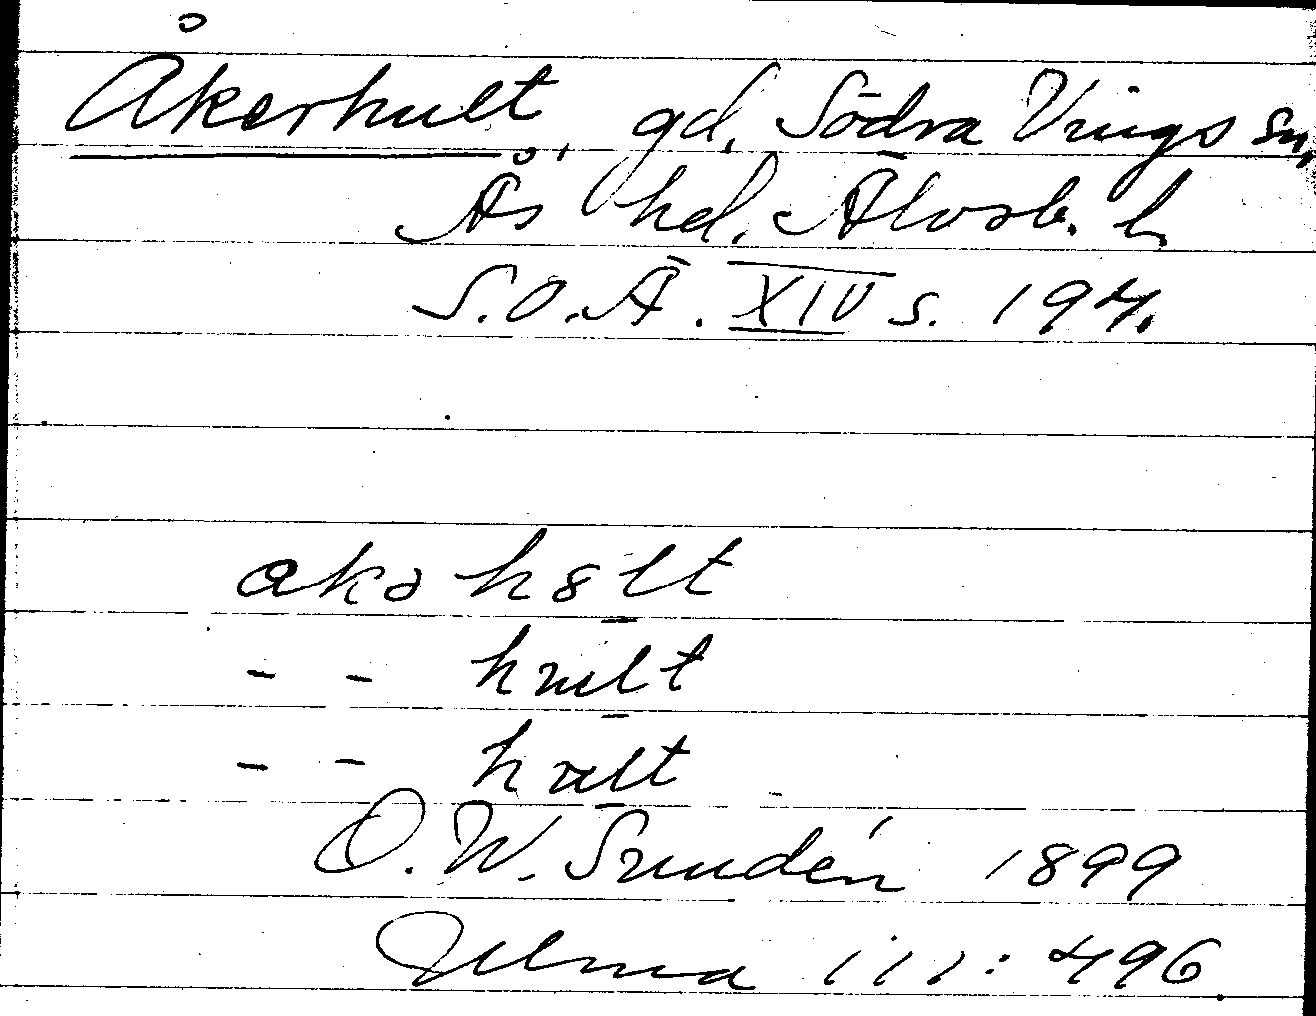 Åkerhult, gd, Södra Vings sn,
Ås hd, Älvsb. l.
S.O.Ä. XIV s. 194.
akə hȣlt
- - hult
- - hult
D. W. Sundén 1899
111: 496.